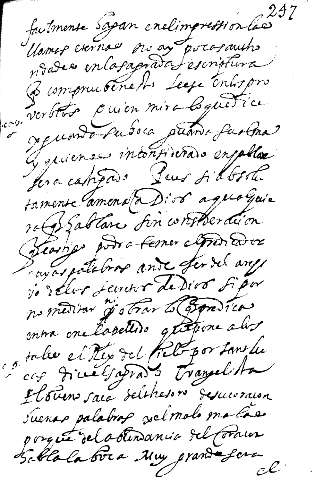 237
facilmente hagan en el impression las
llamas eternas no ay pocas autho
ridades en la sagrada escriptura
q comprueben esto leese en los pro
verbios quien mira lo que dice
y guarda su boca guarda su alma
y quien es inconsiderado en hablar
sera castigado Pues si absolu
tamente amenaça Dios a qualquie
ra q hablare sin consideracion
castigo podra temer el predicador
cuyas palabras an de ser del
de los secretos de Dios si por
no meditar ni obrar lo q predica
entra en el apellido que pone a los
tales el Rey del cielo por san
cas dice el sagrado Evangelista
El bueno saca del thesoro de su coraçon
buenas palabras y el malo malas
porque de la abundancia del Coraçon
habla la boca Muy grande sera
el